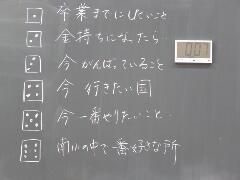 卒業までにしたいこと
金持ちになったら…
今がんばっていること
今行きたい国
今一番やりたいこと…
南小の中で一番好きな所
0:07